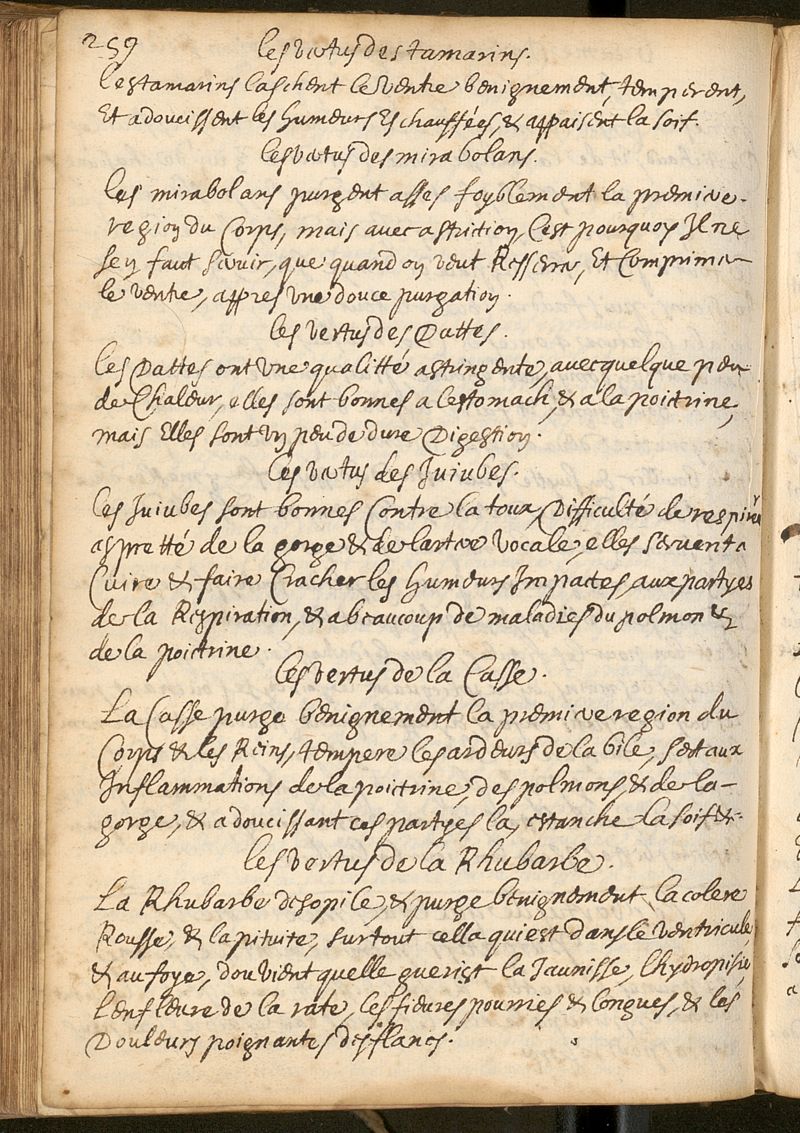 259
Les vertus des tamarins.
Les tamarins laschent le ventre benignement, temperent,
Et adoucissent les humeurs Eschauffées, & appaisent la soif.
Les vertus des mirabolans.
Les mirabolans purgent asses foyblement la premiere
region du Corps, mais avec astriction, C'est pourquoy Il ne
sen faut servir, que quand on veut Resserrer, Et Comprimer
le ventre, appres une douce purgation.
Les vertus des Dattes.
Les Dattes ont une qualitté astringente, avec quelque peu
de Chaleur, elles sont bonnes a lestomach, & a la poictrine,
mais Elles sont un peu de dure Digestion.
Les vertus des Juiubes.
Les Juiubes sont bonnes Contre la toux, Difficulté de respirer
aspretté de la gorge & de lartere vocale, elles servent a
Cuire & faire Cracher les humeurs Impactes, aux partyes
de la Respiration, & a beaucoup de maladies du polmon &
de la poictrine.
Les vertus de la Casse.
La Casse purge benignement la premiere region du
Corps & les Reins, tempere les ardeurs de la bile, sert aux
Inflammations de la poictrine, des polmons, & de la
gorge, & adoucissant ces partyes la, estanche la soif &.
Les vertus de la Rhubarbe.
La Rhubarbe desopile, & purge benignement la colere
Rousse, & la pituite, surtout cella qui est dans le ventricule,
& au foye, dou vient quelle guerist la Jaunisse, lhydropisie,
Lenfleure de la rate, les fievres pourries & longues, & les
Douleurs poignantes des flancs.